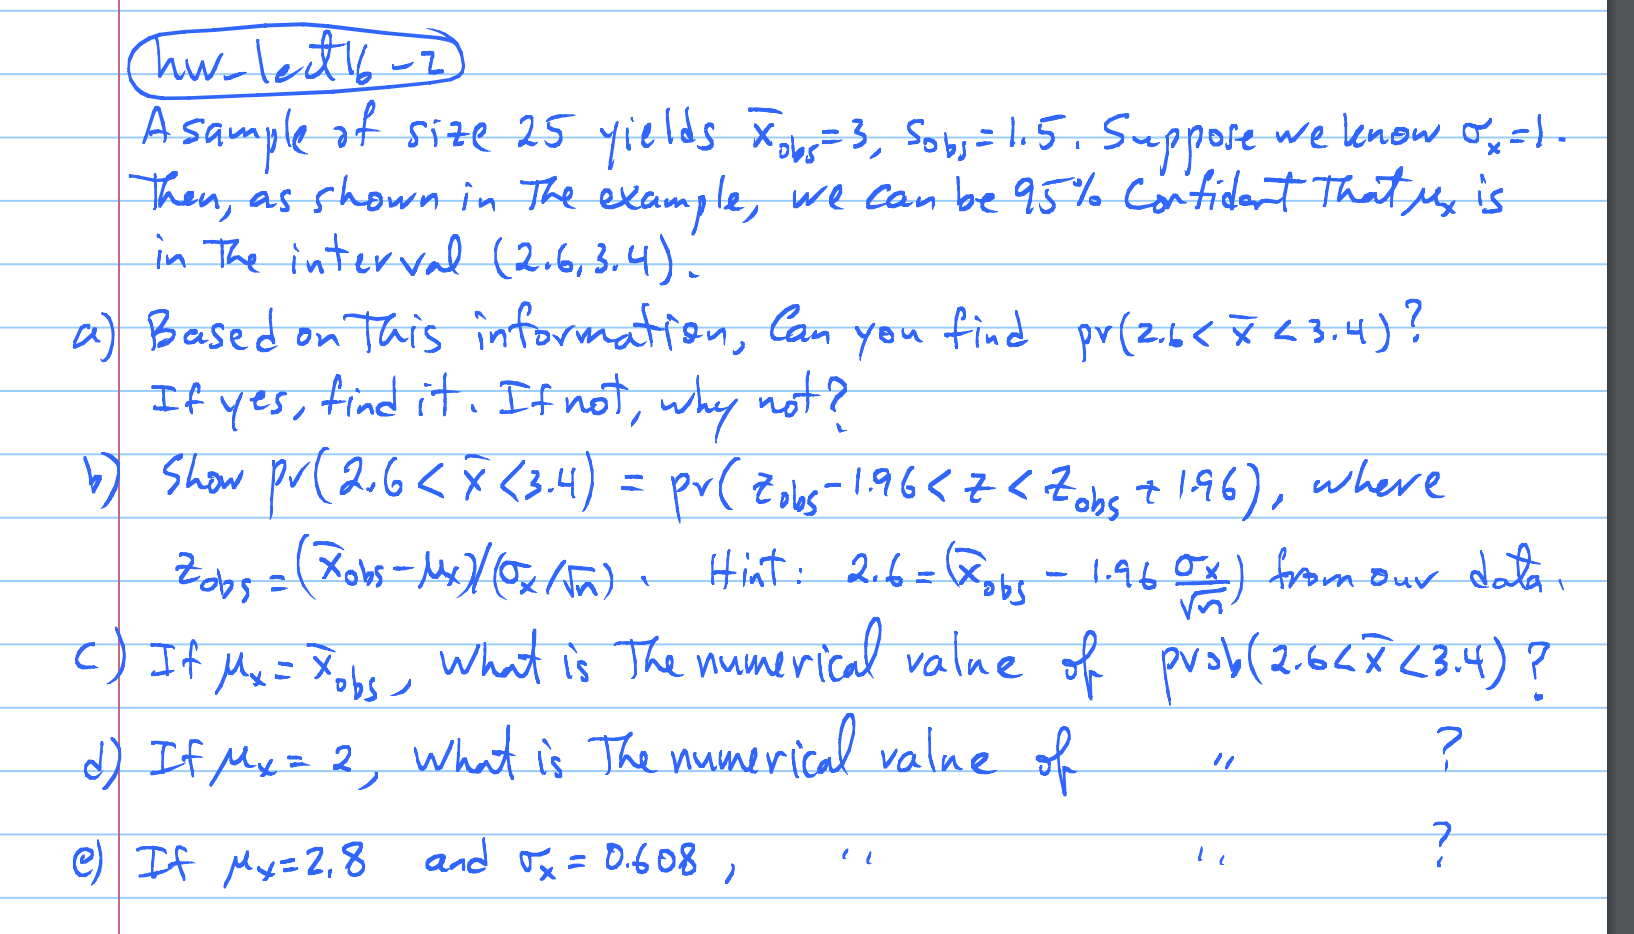 hw-lect16-2
A sample of size 25 yields x̄_obs = 3, s_obs = 1.5. Suppose we know σ_x = 1.
Then, as shown in the example, we can be 95% Confident that μ_x is
in the interval (2.6, 3.4).
a) Based on this information, Can you find pr(2.6 < x̄ < 3.4)?
If yes, find it. If not, why not?
b) Show pr(2.6 < x̄ < 3.4) = pr(z_obs - 1.96 < z < z_obs + 1.96), where
z_obs = (x̄_obs - μ_x)/(σ_x/√n). Hint: 2.6 = (x̄_obs - 1.96 σ_x/√n) from our data.
c) If μ_x = x̄_obs, what is the numerical value of prob(2.6 < x̄ < 3.4)?
d) If μ_x = 2, what is the numerical value of " ?
e) If μ_x = 2.8 and σ_x = 0.608, " " ?